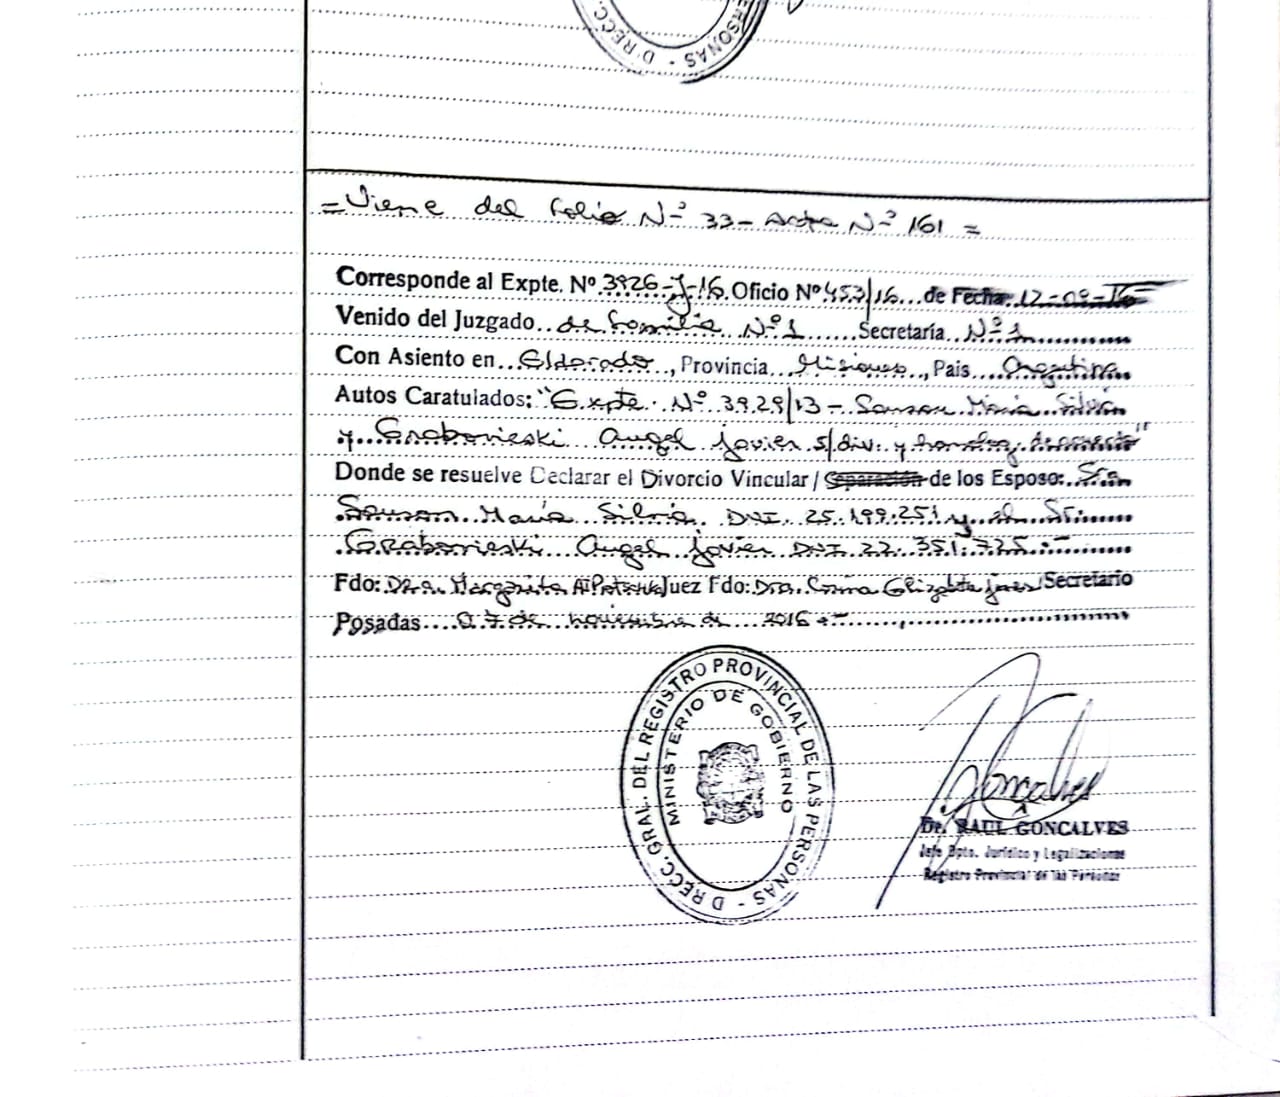 D RECC. PERSONAS -
= Viene del Folio Nº 33 - Acta Nº 161 =
Corresponde al Expte. Nº 3926-J-16. Oficio Nº 453/16... de Fecha: 12-09-16
Venido del Juzgado.. de Familia Nº 1 ......Secretaría..Nº 1............
Con Asiento en...Eldorado.., Provincia..Misiones.., Pais....Argentina...
Autos Caratulados: "Expte. Nº 3929/13 - Sauson María Silvia
y...Graborieski Angel Javier s/div. y homolog. de convenio"
Donde se resuelve Declarar el Divorcio Vincular / Separación de los Esposo:..Sra
Sauson María Silvia DNI. 25.199.251 y al Sr.
Graborieski Angel Javier DNI 22.351.725.-
Fdo: Dra. Margarita Juez Fdo: Dra. Elizabeth Secretario
Posadas....07 de noviembre de 2016.-
D RECC. GRAL. DEL REGISTRO PROVINCIAL DE LAS PERSONAS -
MINISTERIO DE GOBIERNO
Goncalves
Dr. RAUL GONCALVES
Jefe Dpto. Jurídico y Legalizaciones
Registro Provincial de las Personas